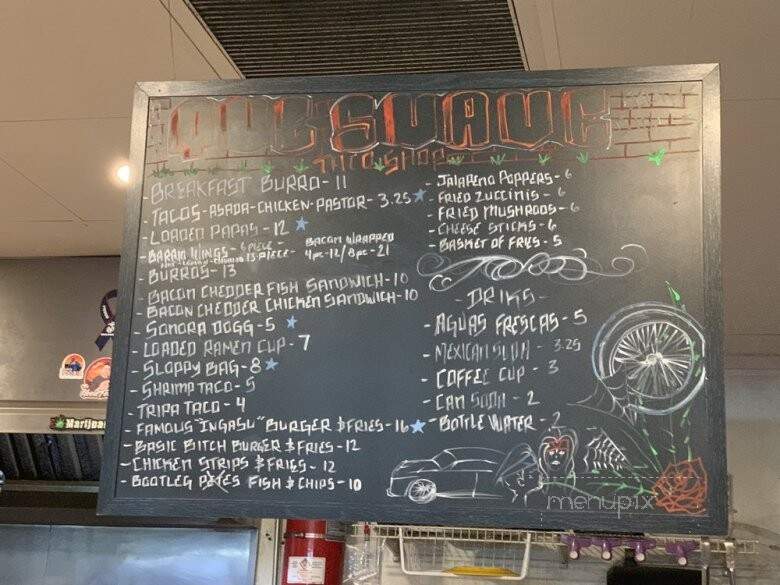 QUE SUAVE
TACO SHOP
- BREAKFAST BURRO - 11
- TACOS - ASADA - CHICKEN - PASTOR - 3.25
- LOADED PAPAS - 12
- BARRIO WINGS - 6 PIECE - BACON WRAPPED
13 PIECE - 4pc - 12 / 8pc - 21
- BURROS - 13
- BACON CHEDDER FISH SANDWICH - 10
- BACON CHEDDER CHICKEN SANDWICH - 10
- SONORA DOGG - 5
- LOADED RAMEN CUP - 7
- SLOPPY BAG - 8
- SHRIMP TACO - 5
- TRIPA TACO - 4
- FAMOUS "INGASU" BURGER & FRIES - 16
- BASIC BITCH BURGER & FRIES - 12
- CHICKEN STRIPS & FRIES - 12
- BOOTLEG PETES FISH & CHIPS - 10
- JALAPENO POPPERS - 6
- FRIED ZUCCINIS - 6
- FRIED MUSHROOS - 6
- CHEESE STICKS - 6
- BASKET OF FRYS - 5
- DRIKS -
- AGUAS FRESCAS - 5
- MEXICAN SODA - 3.25
- COFFEE CUP - 3
- CAN SODA - 2
- BOTTLE WATER - 2
Marijua
menupix